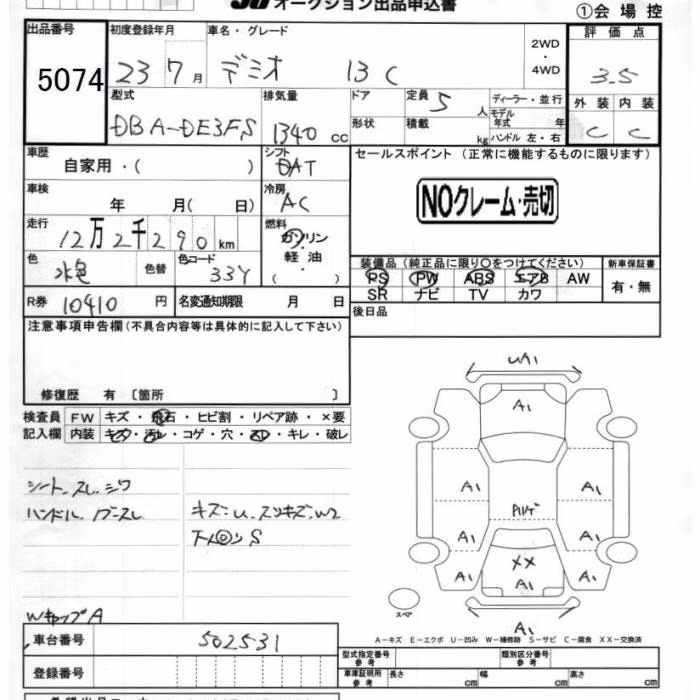 オークション出品申込書
①会場控
出品番号 初度登録年月 車名・グレード 評価点
5074 23 7月 デミオ 13C 2WD・4WD 3.5
型式 排気量 ドア 定員 5人 ディーラー・並行 外装 内装
DBA-DE3FS 1340cc 形状 積載 kg モデル年式 年 ハンドル 左・右 C C
車歴 シフト セールスポイント (正常に機能するものに限ります)
自家用・( ) DAT
車検 冷房 NOクレーム・売切
年 月( 日) AC
走行 燃料
12万2千290km ガソリン・軽油・( )
色 色替 色コード 装備品 (純正品に限り○をつけてください) 新車保証書
水色 33Y PS PW ABS エアB AW 有・無
SR ナビ TV カワ
R券 10410円 名変通知期限 月 日 後日品
注意事項申告欄 (不具合内容等は具体的に記入して下さい)
修復歴 有 〔箇所 〕
検査員 FW キズ・飛石・ヒビ割・リペア跡・×要
記入欄 内装 キズ・汚レ・コゲ・穴・スレ・キレ・破レ
シート スレ シワ
ハンドル ノブ スレ キズ=U スリキズ=W2
下回りS
WキャップA
UA1
A1
A1 A1
A1 A1
XX
A1 A1 A1
スペア
A1
A-キズ E-エクボ U-凹み W-補修跡 S-サビ C-腐食 XX-交換済
車台番号 502531
型式指定番号 参考 類別区分番号 参考
登録番号 車庫証明用 参考 長さ cm 幅 cm 高さ cm